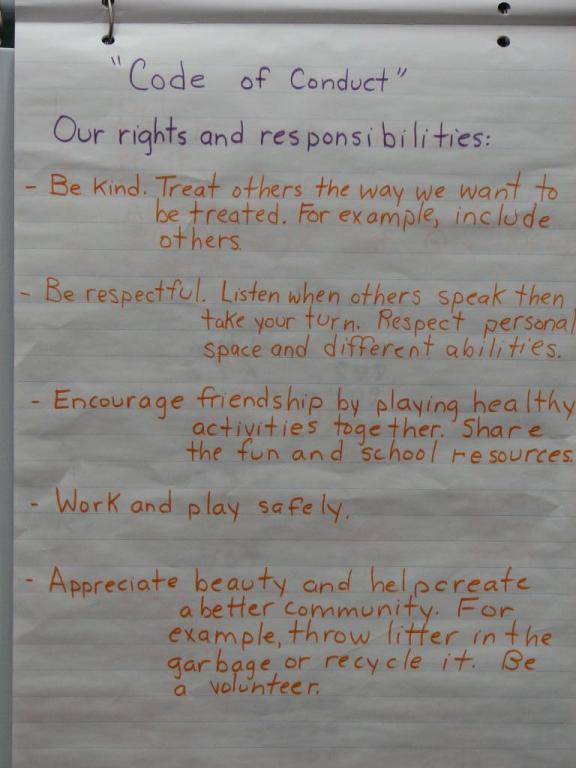 "Code of Conduct"
Our rights and responsibilities:
- Be kind. Treat others the way we want to
be treated. For example, include
others.
- Be respectful. Listen when others speak then
take your turn. Respect personal
space and different abilities.
- Encourage friendship by playing healthy
activities together. Share
the fun and school resources.
- Work and play safely.
- Appreciate beauty and help create
a better community. For
example, throw litter in the
garbage or recycle it. Be
a volunteer.